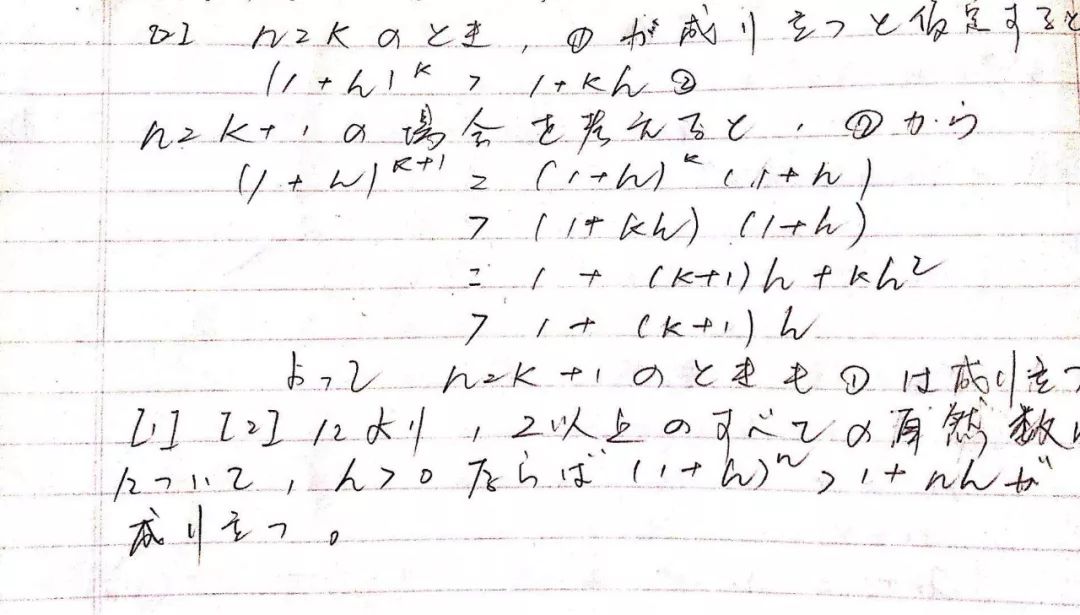 [2] n=kのとき,①が成り立つと仮定すると
(1+h)^k > 1+kh ②
n=k+1の場合を考えると,②から
(1+h)^{k+1} = (1+h)^k (1+h)
> (1+kh) (1+h)
= 1 + (k+1)h + kh²
> 1 + (k+1)h
よって n=k+1のときも①は成り立つ
[1] [2]により,2以上のすべての自然数n
について,h>0ならば (1+h)^n > 1+nhが
成り立つ。